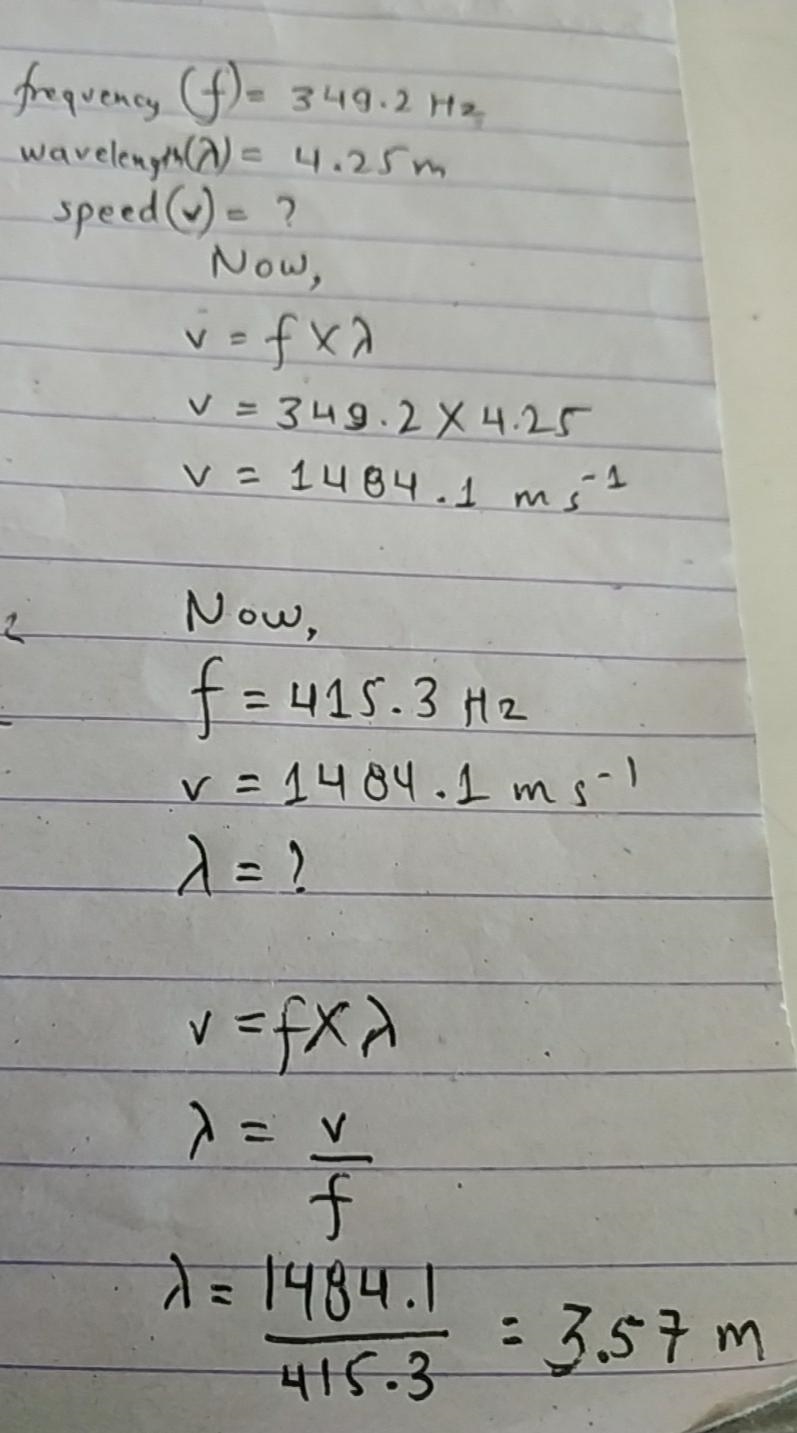 frequency (f) = 349.2 Hz
wavelength(λ) = 4.25 m
speed(v) = ?
Now,
v = f × λ
v = 349.2 × 4.25
v = 1484.1 m s⁻¹
2
Now,
f = 415.3 Hz
v = 1484.1 m s⁻¹
λ = ?
v = f × λ
λ = v/f
λ = 1484.1/415.3 = 3.57 m